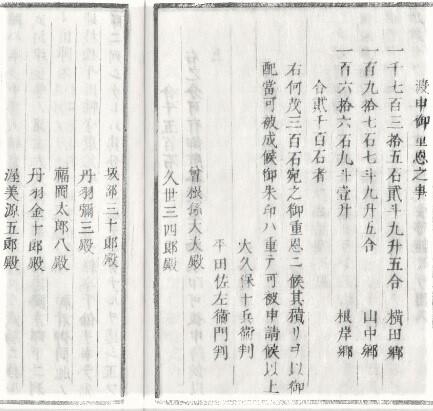 渡申御重恩之事
一千七百三拾五石貳斗九升五合　橫田鄉
一百九拾七石七斗九升五合　山中鄉
一百六拾六石九斗壹升　根岸鄉
合貳千百石者
右何茂三百石宛之御重恩ニ候其積リヲ以御
配當可被成候御朱印ハ重テ可被申請候以上
大久保十兵衞判
平田佐左衞門判
曾根孫大夫殿
久世三四郎殿
坂部三十郎殿
丹羽彌三殿
福岡太郎八殿
丹羽金十郎殿
渥美源五郎殿